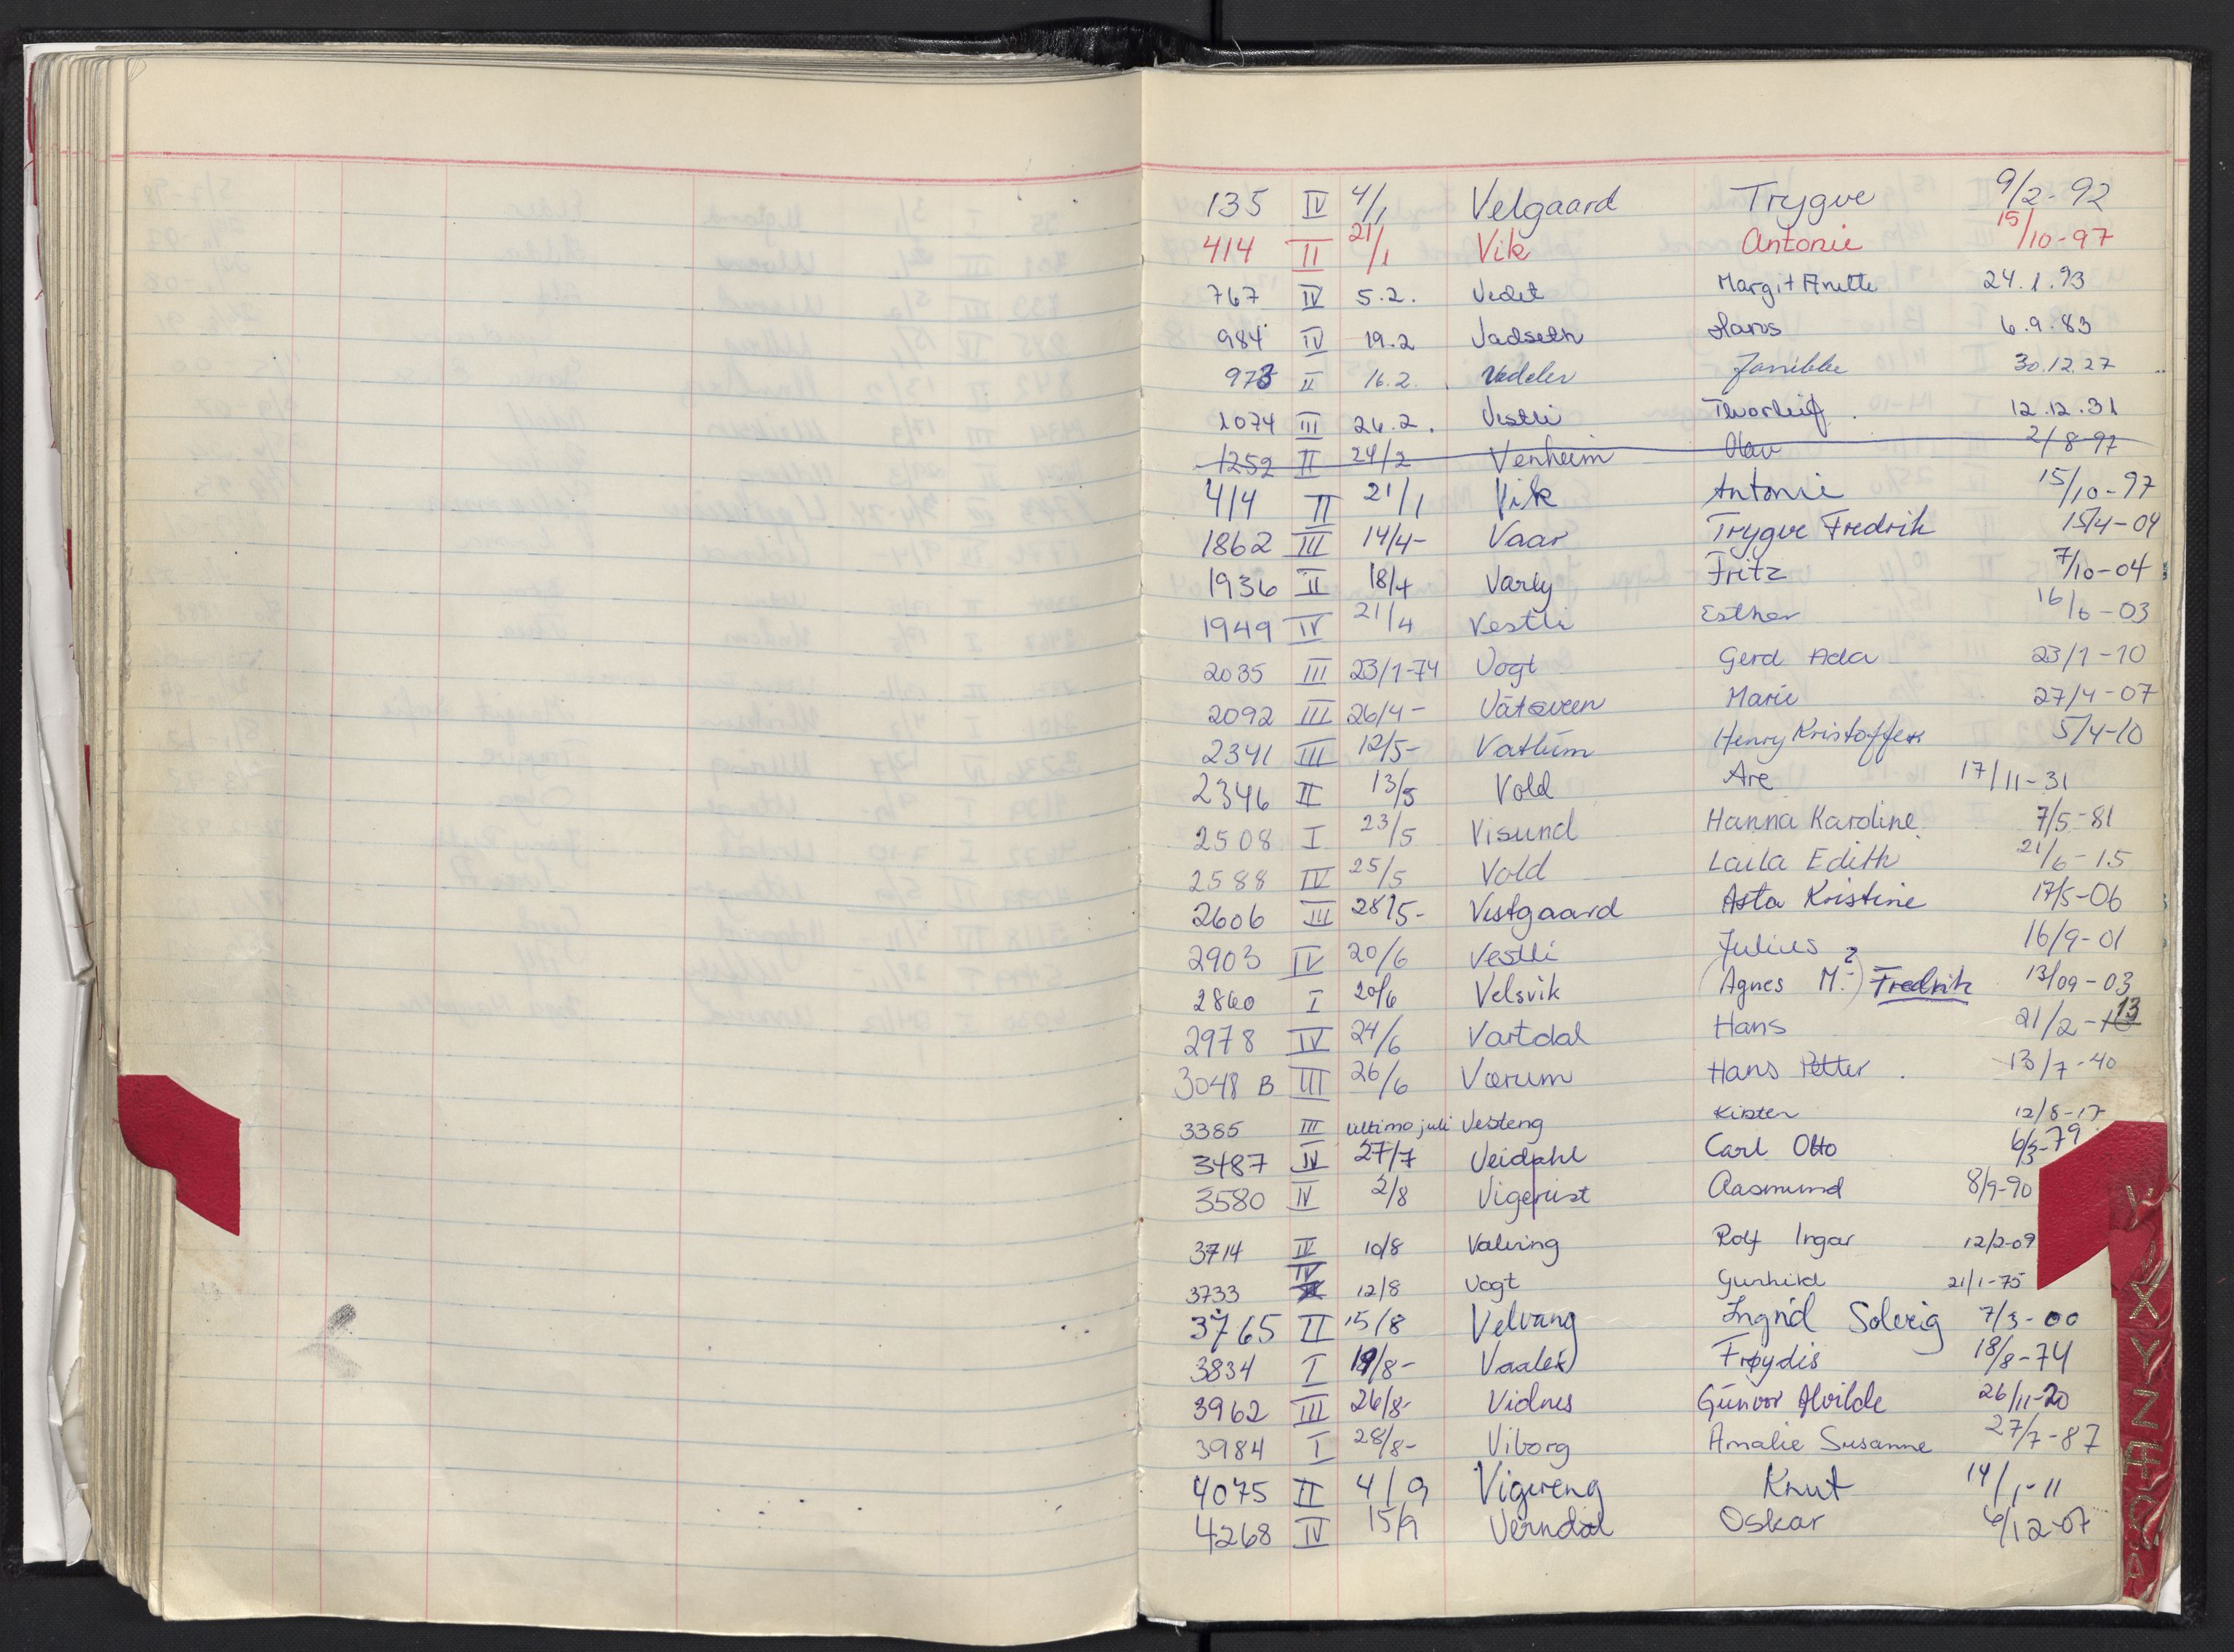 135 IV 4/1 Velgaard Trygve 9/2-92
414 II 21/1 Vik Antonie 15/10-97
767 IV 5.2. Vedet Margit Anette 24.1.93
984 IV 19.2 Vadseth Hans 6.9.83
973 II 16.2. Vedeler Jannikke 30.12.27
1074 III 26.2. Vestli Thorleif. 12.12.31
1252 II 24/2 Venheim Olav 2/8-97
414 II 21/1 Vik Antonie 15/10-97
1862 III 14/4- Vaar Trygve Fredrik 15/4-04
1936 II 18/4 Varly Fritz 7/10-04
1949 IV 21/4 Vestli Esther 16/6-03
2035 III 23/1-74 Vogt Gerd Ada 23/1-10
2092 III 26/4- Våtsveen Marie 27/4-07
2341 III 12/5- Vatlum Henry Kristoffer 5/4-10
2346 II 13/5 Vold Are 17/11-31
2508 I 23/5 Visund Hanna Karoline 7/5-81
2588 IV 25/5 Vold Laila Edith 21/6-15
2606 III 28/5- Vestgaard Asta Kristine 17/5-06
2903 IV 20/6 Vestli Julius 16/9-01
2860 I 20/6 Velsvik (Agnes M.-)? Fredrik 13/09-03
2978 IV 24/6 Vartdal Hans 21/2-13
3048 B III 26/6 Værum Hans Petter. 13/7-40
3385 III ultimo juli Vesteng Kirsten 12/8-17
3487 IV 27/7 Veidahl Carl Otto 6/3-79
3580 IV 2/8 Vigerust Aasmund 8/9-90
3714 IV 10/8 Valving Rolf Ingar 12/2-09
3733 IV 12/8 Vogt Gunhild 21/1-75
3765 II 15/8 Velvang Ingrid Solveig 7/3-00
3834 I 19/8- Vaaler Frøydis 18/8-74
3962 III 26/8- Vidnes Gunvor Alvilde 26/11-20
3984 I 28/8- Viborg Amalie Susanne 27/7-87
4075 II 4/9 Vigereng Knut 14/1-11
4268 IV 15/9 Verndal Oskar 6/12-07
V
X
Y
Z
Æ
Ø
Å